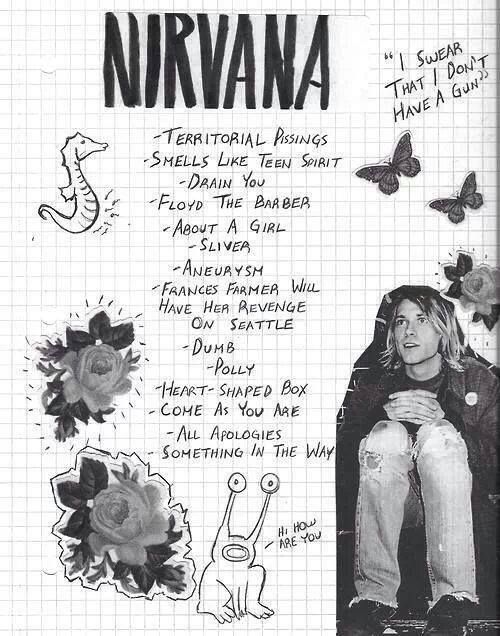 NIRVANA
"I SWEAR
THAT I DON'T
HAVE A GUN"
-TERRITORIAL PISSINGS
-SMELLS LIKE TEEN SPIRIT
-DRAIN YOU
-FLOYD THE BARBER
-ABOUT A GIRL
-SLIVER
-ANEURYSM
-FRANCES FARMER WILL
HAVE HER REVENGE
ON SEATTLE
-DUMB
-POLLY
-HEART-SHAPED BOX
-COME AS YOU ARE
-ALL APOLOGIES
-SOMETHING IN THE WAY
HI HOW
ARE YOU